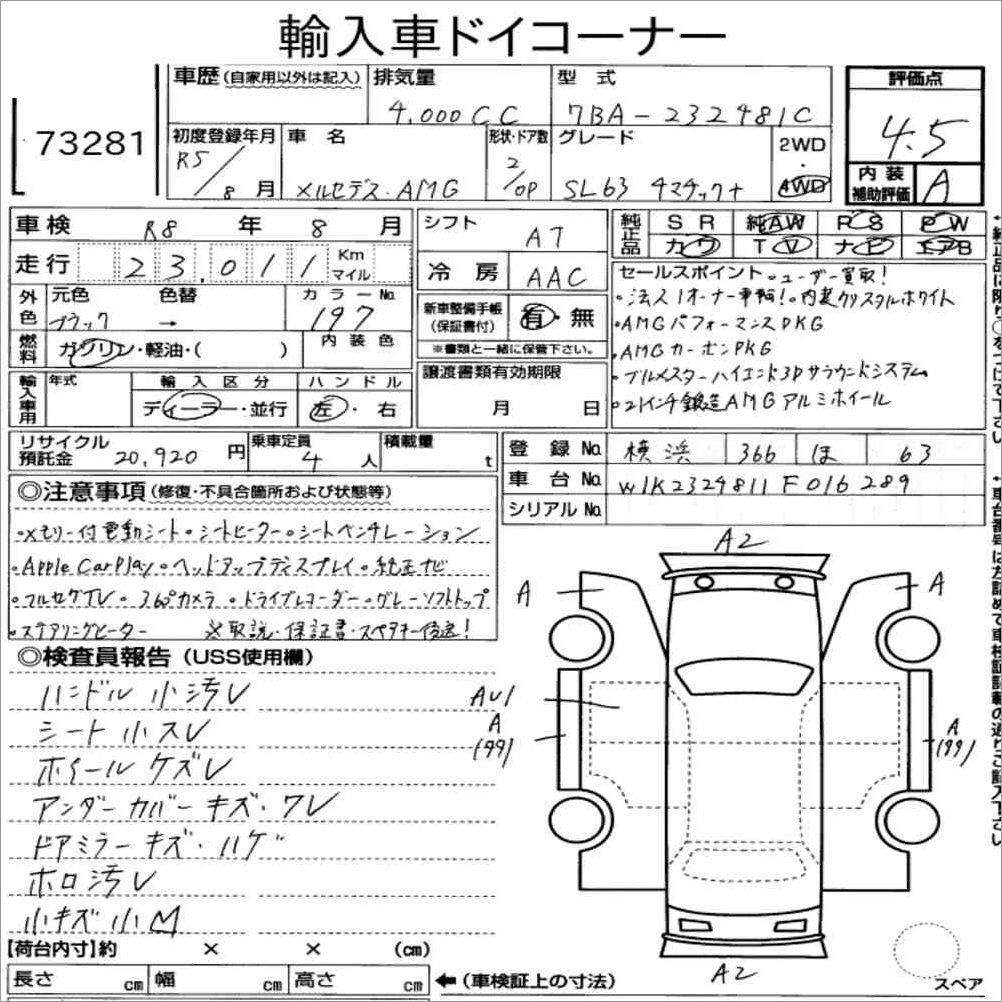 輸入車ドイコーナー
73281
車歴 (自家用以外は記入) 排気量 型式 評価点
4,000CC 7BA-232481C 4.5
初度登録年月 車名 形状・ドア数 グレード 2WD
R5/8月 メルセデス・AMG 2/OP SL63 4マチック+ 4WD
内装補助評価 A
車検 R8年8月
走行 23,011 Km マイル
シフト A7
冷房 AAC
純正品 SR 純AW PS PW
カワ TV ナビ エアB
外色 元色 色替 カラーNo.
ブラック → 197
燃料 ガソリン・軽油・( ) 内装色
新車整備手帳(保証書付) 有・無
※書類と一緒に保管下さい。
譲渡書類有効期限
月 日
輸入車用 年式 輸入区分 ハンドル
ディーラー・並行 左・右
セールスポイント ・ユーザー買取!
・法人1オーナー車輌!・内装クリスタルホワイト
・AMGパフォーマンスPKG
・AMGカーボンPKG
・ブルメスターハイエンド3Dサラウンドシステム
・21インチ鍛造AMGアルミホイール
リサイクル預託金 20,920円 乗車定員 4人 積載量 t
登録No. 横浜 366 ほ 63
車台No. W1K2324811F016289
シリアルNo.
◎注意事項 (修復・不具合箇所および状態等)
・メモリー付電動シート・シートヒーター・シートベンチレーション
・Apple CarPlay・ヘッドアップディスプレイ・純正ナビ
・フルセグTV・360°カメラ・ドライブレコーダー・グレーソフトトップ
・ステアリングヒーター ※取説・保証書・スペアキー後送!
◎検査員報告 (USS使用欄)
ハンドル小汚レ
シート小スレ
ホイールケズレ
アンダーカバーキズ・ワレ
ドアミラーキズ・ハゲ
ホロ汚レ
小キズ小凹
A2
A
A
AU1
A
(99)
A
(99)
A2
【荷台内寸】約 × × (cm)
長さ cm 幅 cm 高さ cm ←(車検証上の寸法)
スペア